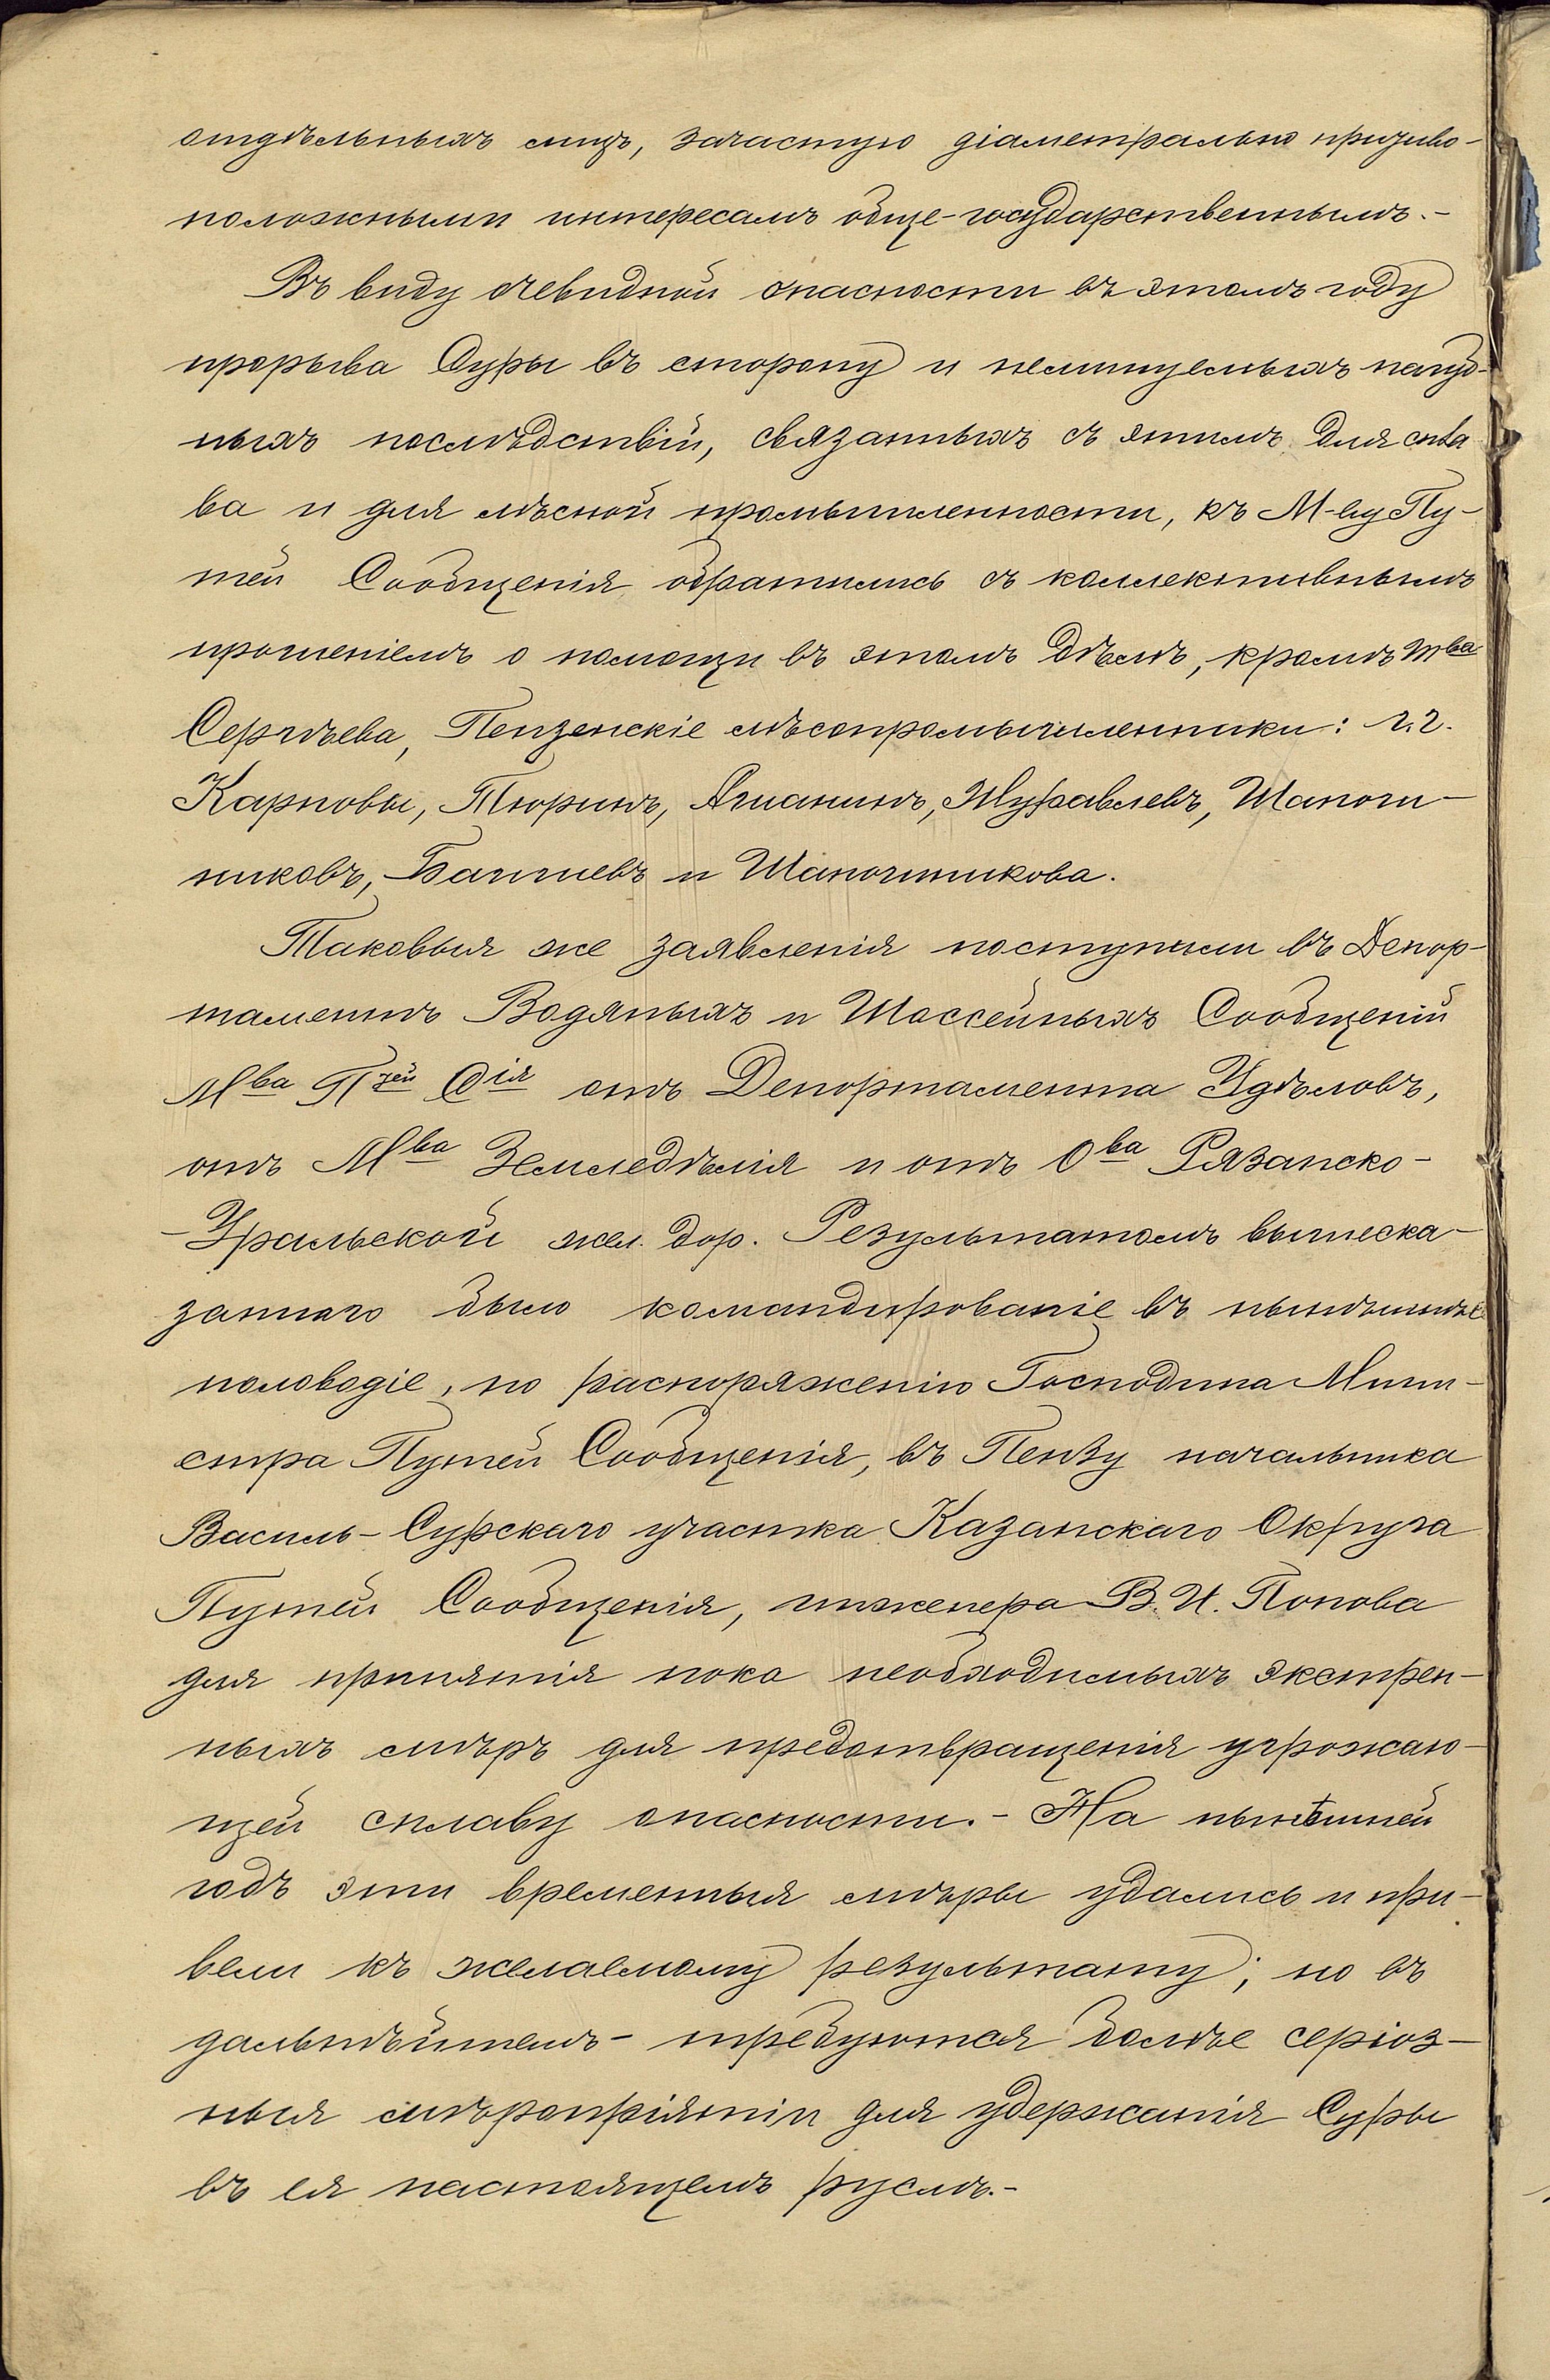 отдѣльныхъ лицъ, зачастую діаметрально противо-
положными интересамъ обще-государственнымъ.-
Въ виду очевидной опасности въ этомъ году
прорыва Суры въ сторону и неминуемыхъ пагуб-
ныхъ послѣдствій, связанныхъ съ этимъ для спла
ва и для лѣсной промышленности, къ М-ву Пу-
тей Сообщенія обратились съ коллективнымъ
прошеніемъ о помощи въ этомъ дѣлѣ, кромѣ Тва
Сергѣева, Пензенскіе лѣсопромышленники: г.г.
Карповы, Тюринъ, Ашанинъ, Журавлевъ, Шапош-
никовъ, Багшевъ и Шапошникова.
Таковыя же заявленія поступили въ Депар-
таментъ Водяныхъ и Шоссейныхъ Сообщеній
Мва Птей Сія отъ Департамента Удѣловъ,
отъ Мва Земледѣлія и отъ Ова Рязанско-
-Уральской жел. дор. Результатомъ вышеска-
заннаго было командированіе въ нынѣшнее
половодіе, по распоряженію Господина Мини-
стра Путей Сообщенія, въ Пензу начальника
Василь-Сурскаго участка Казанскаго Округа
Путей Сообщенія, инженера В. И. Попова
для принятія пока необходимыхъ экстрен-
ныхъ мѣръ для предотвращенія угрожаю-
щей сплаву опасности.- На нынѣшней
годъ эти временныя мѣры удались и при-
вели къ желаемому результату; но въ
дальнѣйшемъ- требуются болѣе серіоз-
ныя мѣропріятіи для удержанія Суры
въ ея настоящемъ руслѣ.-